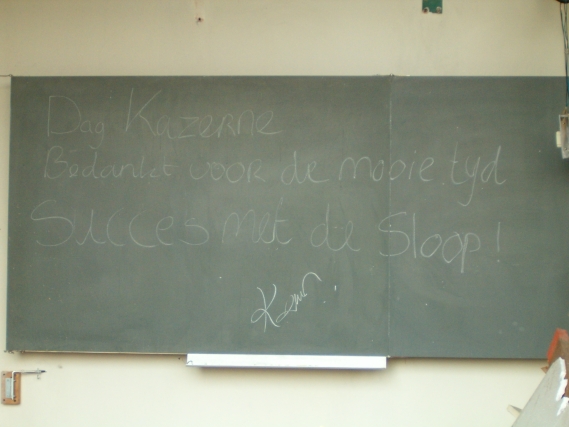 Dag Kazerne
Bedankt voor de mooie tyd
Succes met de Sloop!